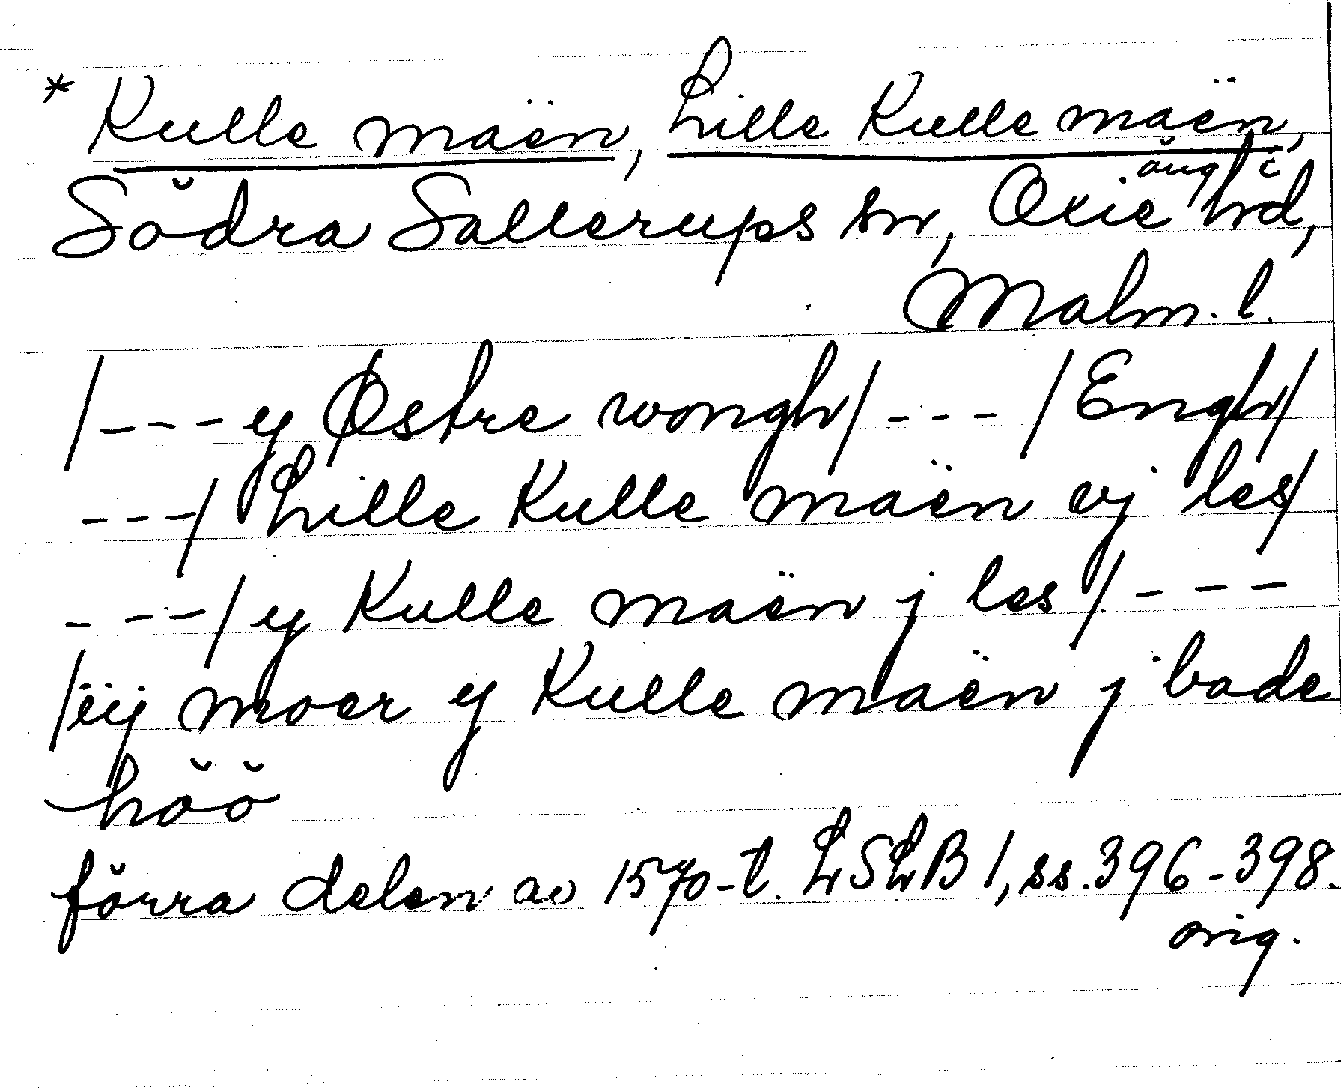 * Kulle maën, Lille Kulle maën,
äng i
Södra Sallerups sn, Oxie hd,
Malm. l.
/---y Østre wongh/ --- /Engh/
---/ Lille Kulle maën vj les/
---/ y Kulle maën j les / ---
/iij moer y Kulle maën j bade
höö
förra delen av 1570-t. LSLB 1, ss. 396-398.
orig.